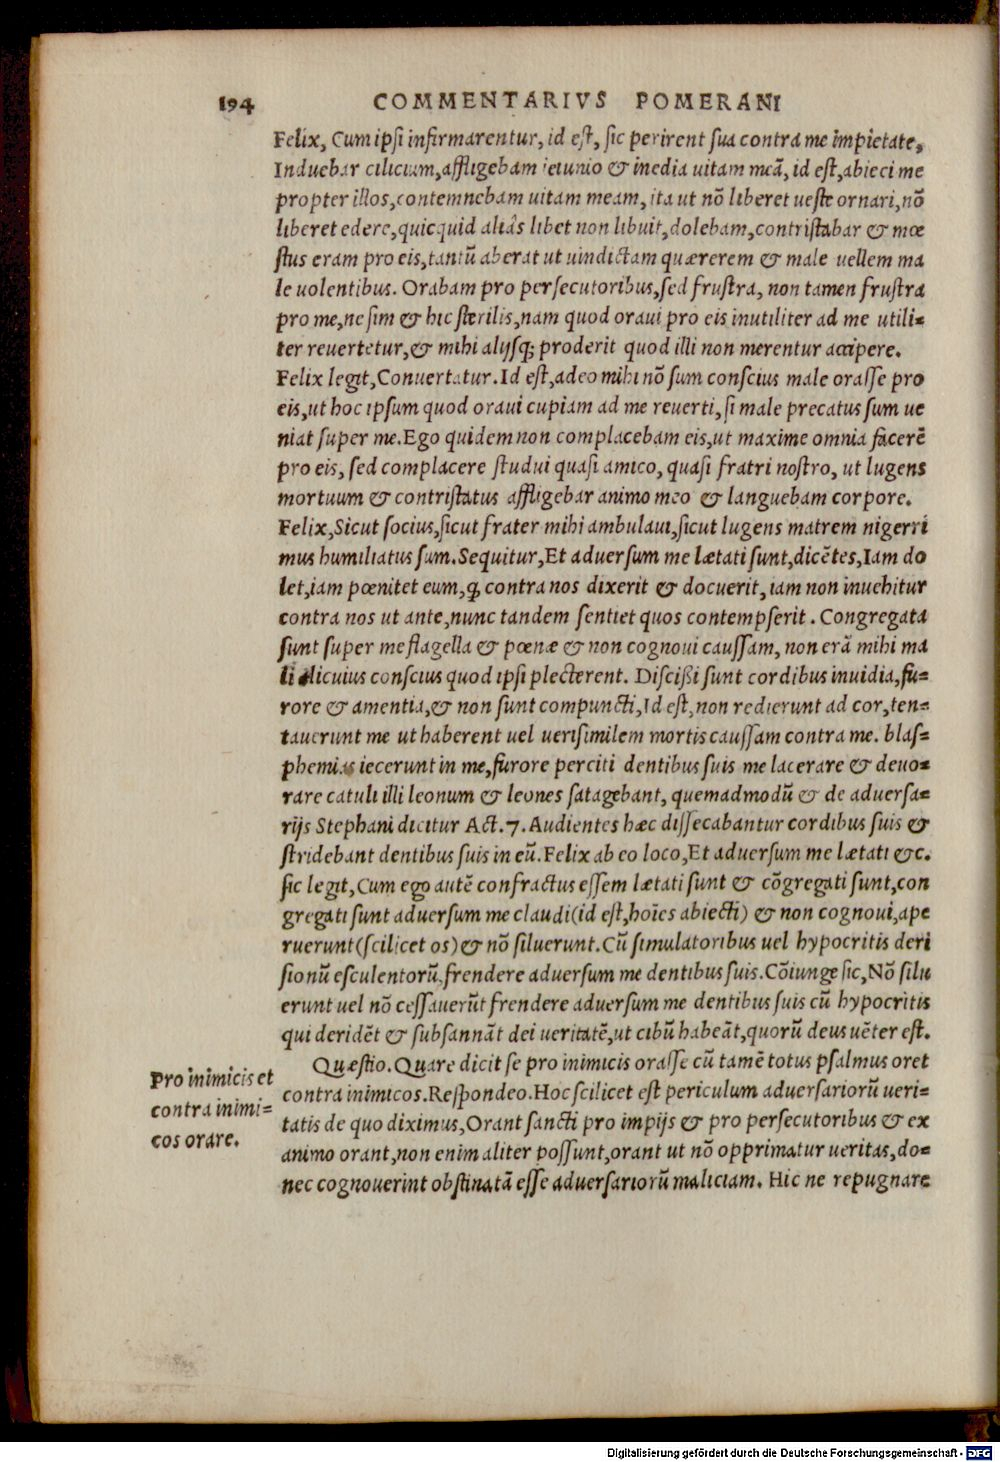 194 COMMENTARIVS POMERANI
Felix, Cum ipsi infirmarentur, id est, sic perirent sua contra me impietate,
Induebar cilicium, affligebam ieiunio & inedia uitam meã, id est, abieci me
propter illos, contemnebam uitam meam, ita ut nõ liberet ueste ornari, nõ
liberet edere, quicquid aliâs libet non libuit, dolebam, contristabar & mœ
stus eram pro eis, tantũ aberat ut uindictam quærerem & male uellem ma
le uolentibus. Orabam pro persecutoribus, sed frustra, non tamen frustra
pro me, ne sim & hic sterilis, nam quod oraui pro eis inutiliter ad me utili=
ter reuertetur, & mihi alijsq; proderit quod illi non merentur accipere.
Felix legit, Conuertatur. Id est, adeo mihi nõ sum conscius male orasse pro
eis, ut hoc ipsum quod oraui cupiam ad me reuerti, si male precatus sum ue
niat super me. Ego quidem non complacebam eis, ut maxime omnia facerẽ
pro eis, sed complacere studui quasi amico, quasi fratri nostro, ut lugens
mortuum & contristatus affligebar animo meo & languebam corpore.
Felix, Sicut socius, sicut frater mihi ambulaui, sicut lugens matrem nigerri
mus humiliatus sum. Sequitur, Et aduersum me lætati sunt, dicẽtes, Iam do
let, iam pœnitet eum, ꝙ contra nos dixerit & docuerit, iam non inuehitur
contra nos ut ante, nunc tandem sentiet quos contempserit. Congregata
sunt super me flagella & pœnæ & non cognoui caussam, non erã mihi ma
li alicuius conscius quod ipsi plecterent. Discißi sunt cordibus inuidia, fu=
rore & amentia, & non sunt compuncti, Id est, non redierunt ad cor, ten=
tauerunt me ut haberent uel uerisimilem mortis caussam contra me. blas=
phemias iecerunt in me, furore perciti dentibus suis me lacerare & deuo=
rare catuli illi leonum & leones satagebant, quemadmodũ & de aduersa=
rijs Stephani dicitur Act. 7. Audientes hæc dissecabantur cordibus suis &
stridebant dentibus suis in eũ. Felix ab eo loco, Et aduersum me lætati &c.
sic legit, Cum ego autẽ confractus essem lætati sunt & cõgregati sunt, con
gregati sunt aduersum me claudi (id est, hoĩes abiecti) & non cognoui, ape
ruerunt (scilicet os) & nõ siluerunt. Cũ simulatoribus uel hypocritis deri
sionũ esculentorũ, frendere aduersum me dentibus suis. Cõiunge sic, Nõ silu
erunt uel nõ cessauerũt frendere aduersum me dentibus suis cũ hypocritis
qui deridẽt & subsannãt dei ueritatẽ, ut cibũ habeãt, quorũ deus uẽter est.
Quæstio. Quare dicit se pro inimicis orasse cũ tamẽ totus psalmus oret
contra inimicos. Respondeo. Hoc scilicet est periculum aduersariorũ ueri=
tatis de quo diximus, Orant sancti pro impijs & pro persecutoribus & ex
animo orant, non enim aliter possunt, orant ut nõ opprimatur ueritas, do=
nec cognouerint obstinatã esse aduersariorũ maliciam. Hic ne repugnare
Pro inimicis et
contra inimi=
cos orare.
Digitalisierung gefördert durch die Deutsche Forschungsgemeinschaft - DFG